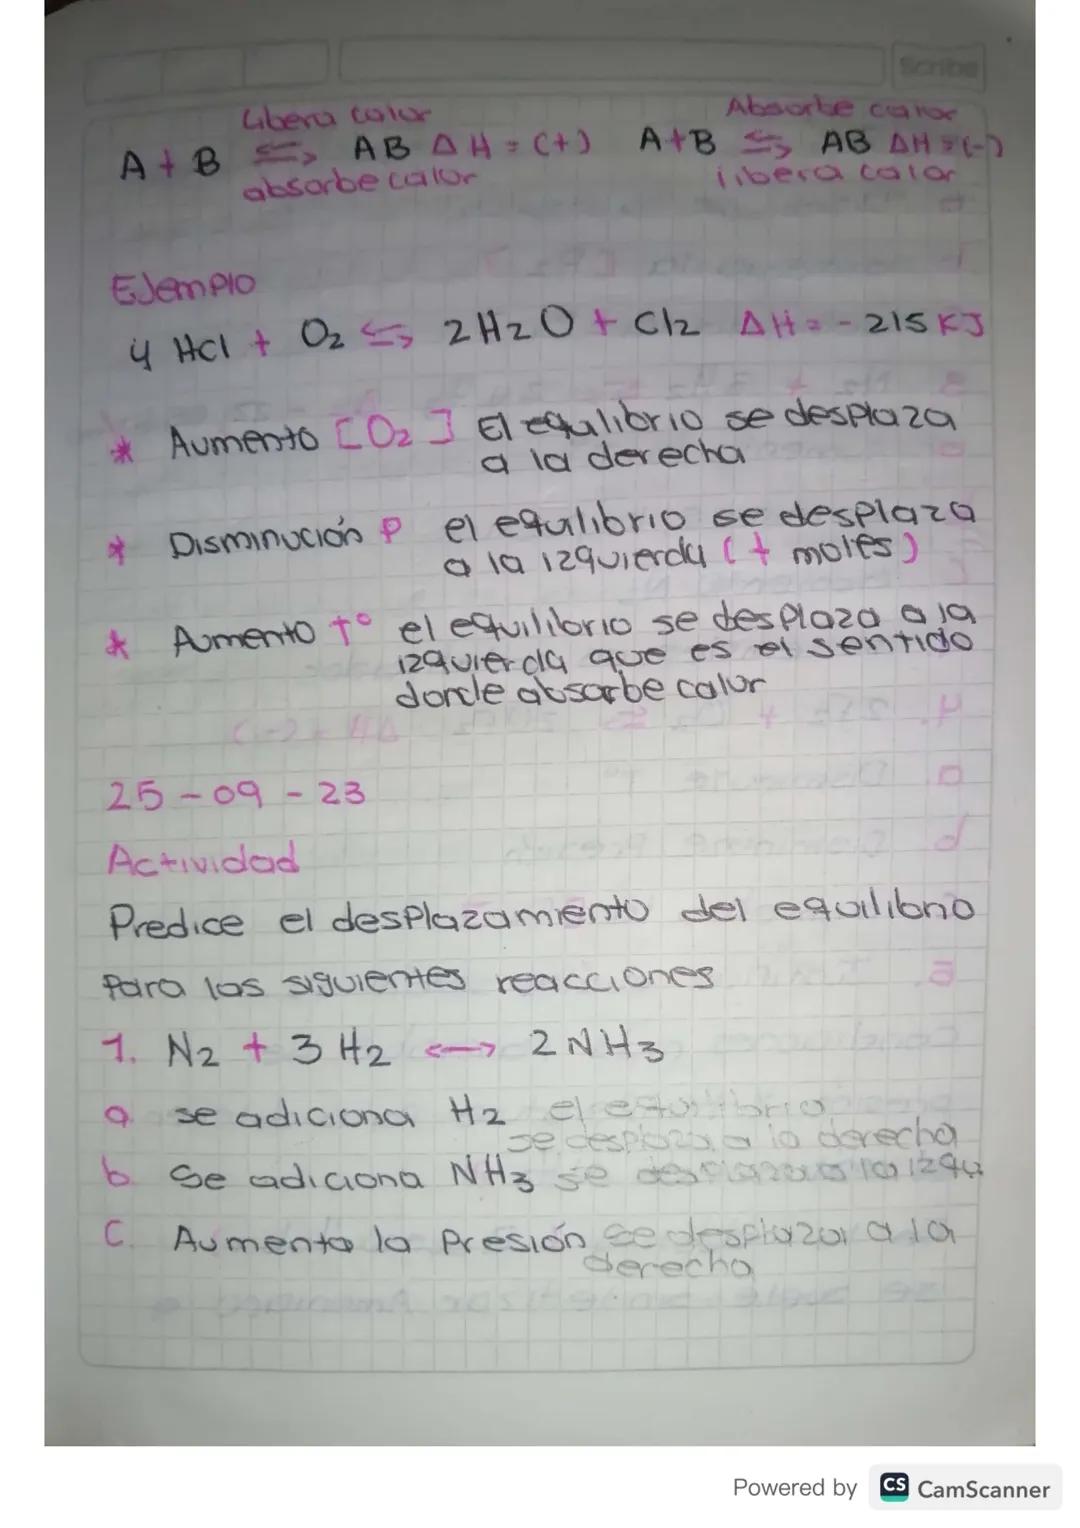 Scribe
Libera calor
Absorbe calor
A + B ⇆ AB ΔH = (+)
A+B ⇆ AB ΔH = (-)
absorbe calor
libera calor
Ejemplo
4 HCl + O2 ⇆ 2H2O + Cl2 ΔH = -215 KJ
* Aumento [O2] El equlibrio se desplaza
a la derecha
* Disminución P el equilibrio se desplaza
a la izquierda (+ moles)
* Aumento t° el equilibrio se desplaza a la
izquierda que es el sentido
donde absorbe calor
25-09-23
Actividad
Predice el desplazamiento del equilibrio
Para las siguientes reacciones
1. N2 + 3 H2 <-> 2NH3
a. se adiciona H2 el equilibrio
se desplaza a la derecha
b. Se adiciona NH3 se desplaza a la izqu
C. Aumenta la Presión se desplaza a la
derecha
Powered by CS CamScanner